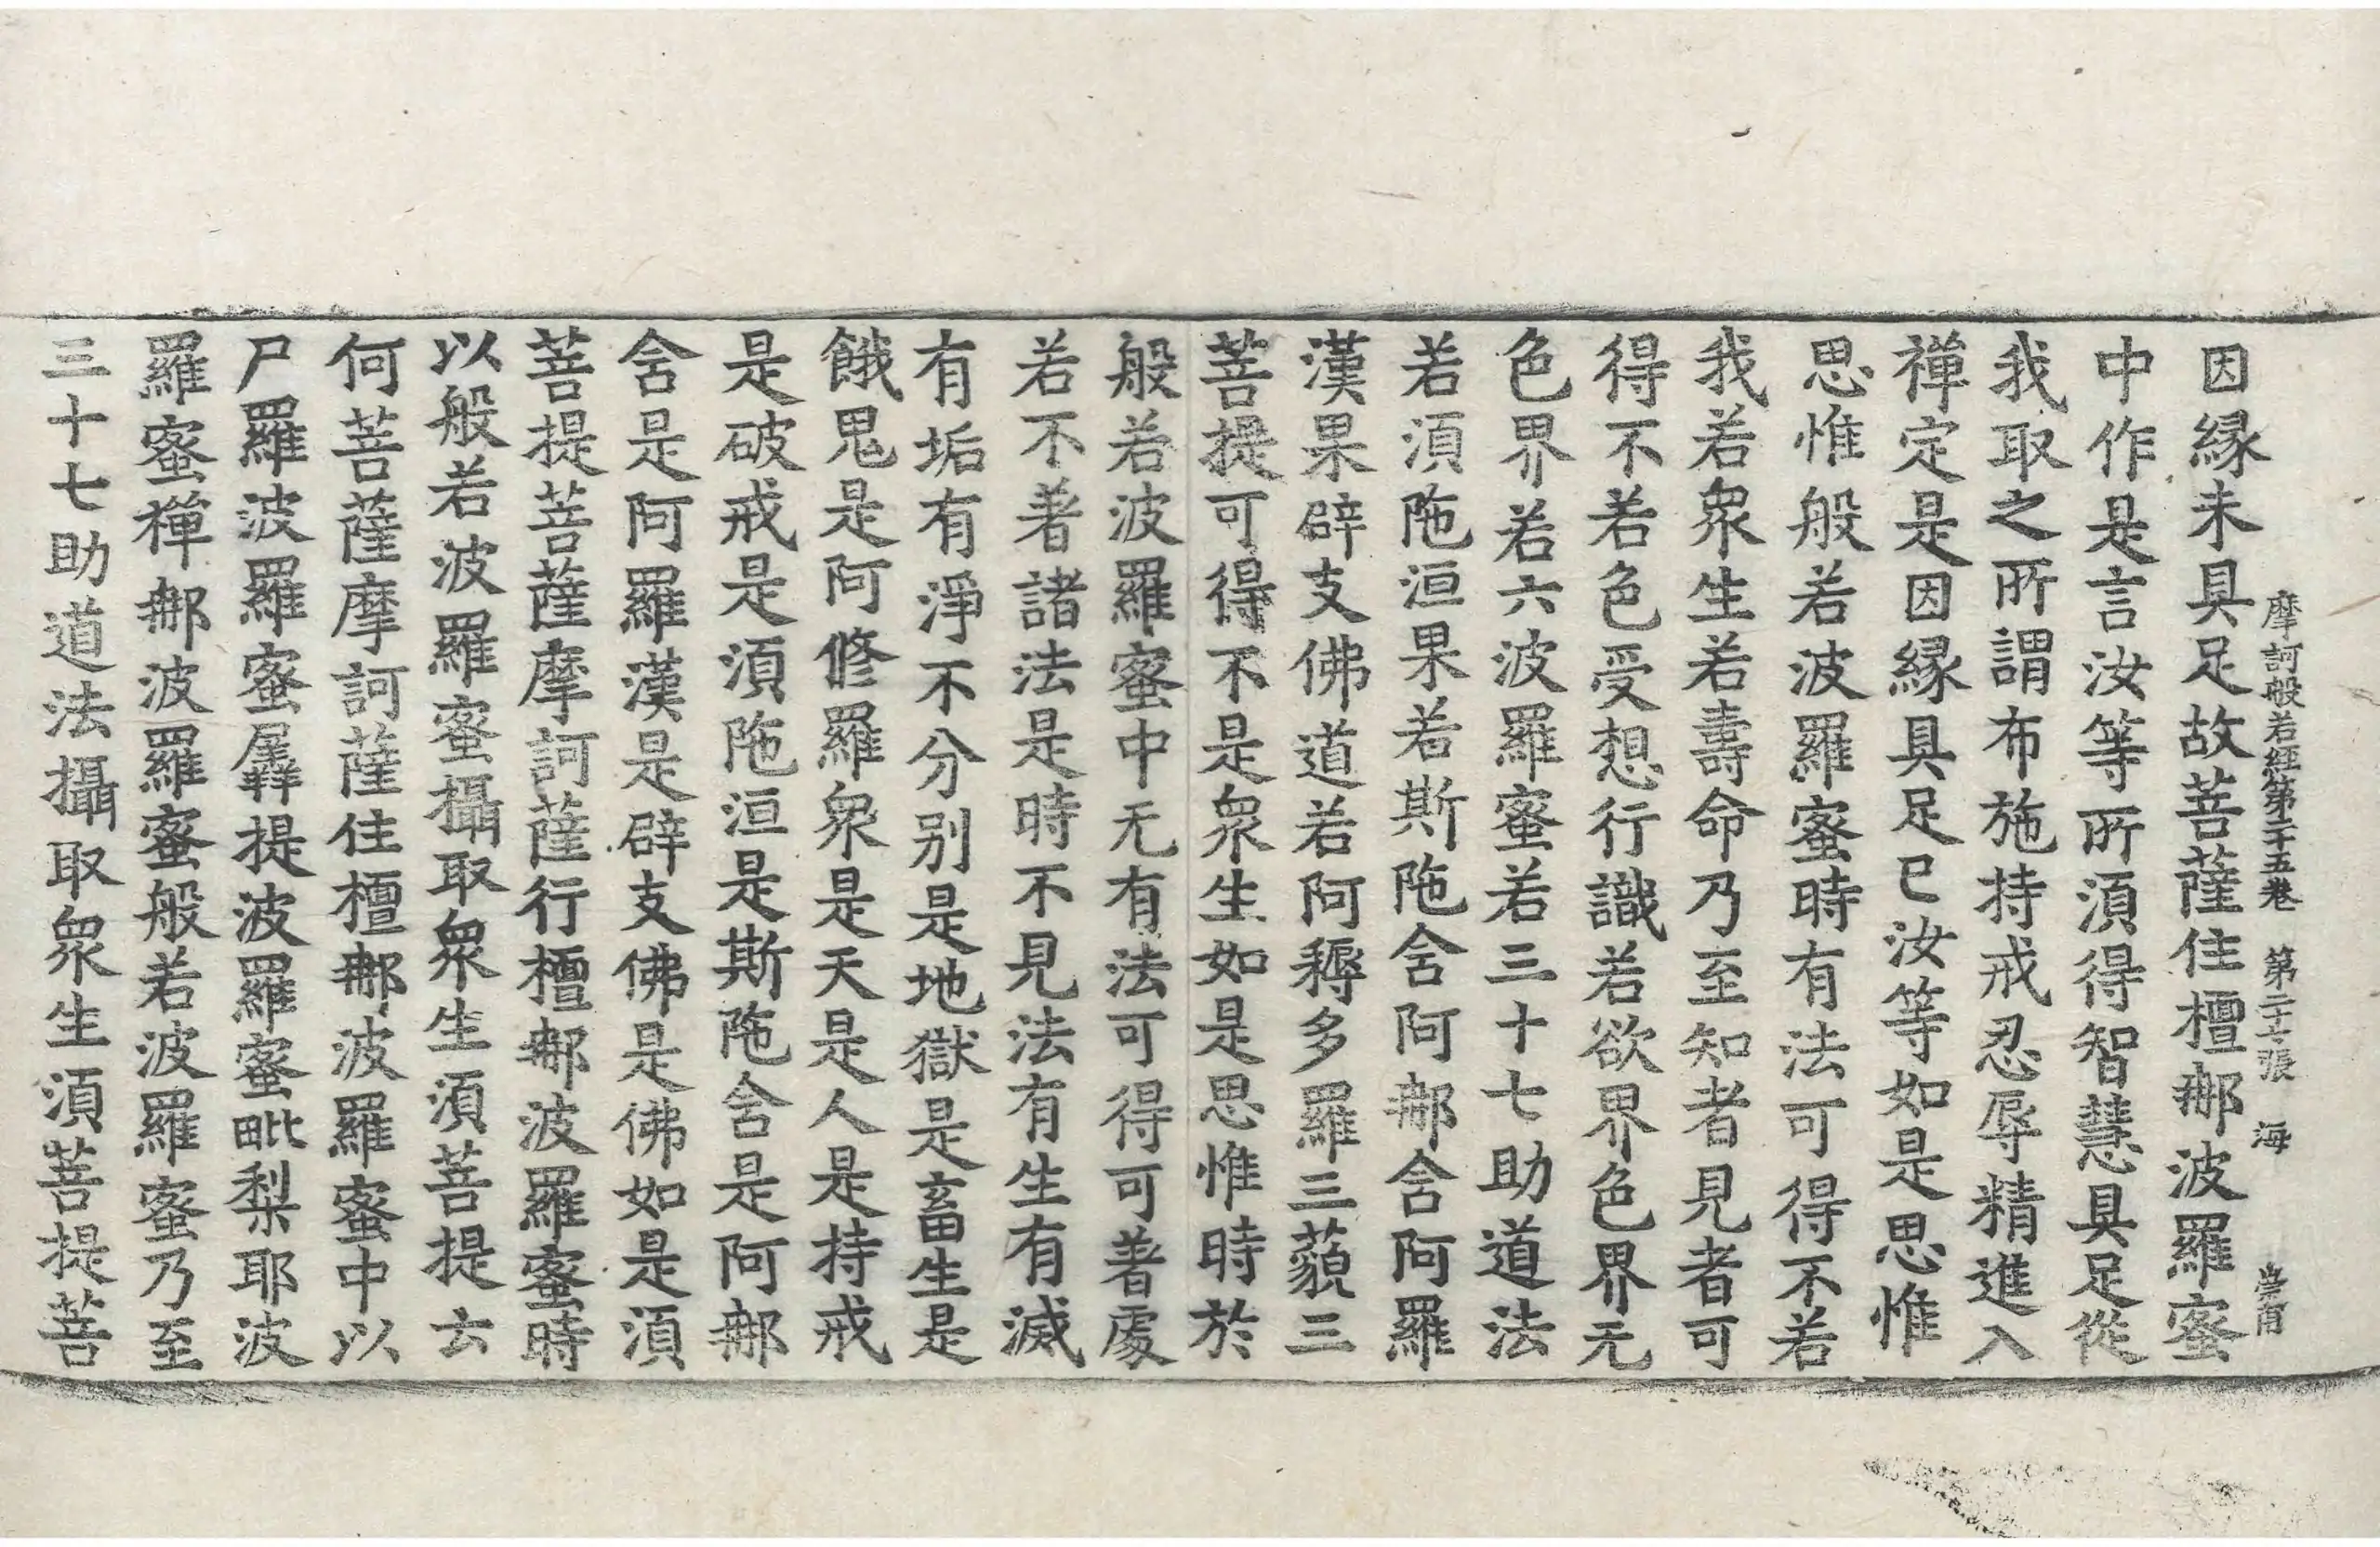 摩訶般若經第二十五卷　第二十七張　海
因縁未具足故菩薩住檀那波羅蜜
中作是言汝等所須得智慧具足從
我取之所謂布施持戒忍辱精進入
禪定是因縁具足已汝等如是思惟
思惟般若波羅蜜時有法可得不若
我若衆生若壽命乃至知者見者可
得不若色受想行識若欲界色界无
色界若六波羅蜜若三十七助道法
若須陁洹果若斯陁含阿那含阿羅
漢果辟支佛道若阿耨多羅三藐三
菩提可得不是衆生如是思惟時於
般若波羅蜜中无有法可得可著處
若不著諸法是時不見法有生有滅
有垢有淨不分別是地獄是畜生是
餓鬼是阿修羅衆是天是人是持戒
是破戒是須陁洹是斯陁含是阿那
含是阿羅漢是辟支佛是佛如是須
菩提菩薩摩訶薩行檀那波羅蜜時
以般若波羅蜜攝取衆生須菩提云
何菩薩摩訶薩住檀那波羅蜜中以
尸羅波羅蜜羼提波羅蜜毗梨耶波
羅蜜禪那波羅蜜般若波羅蜜乃至
三十七助道法攝取衆生須菩提菩